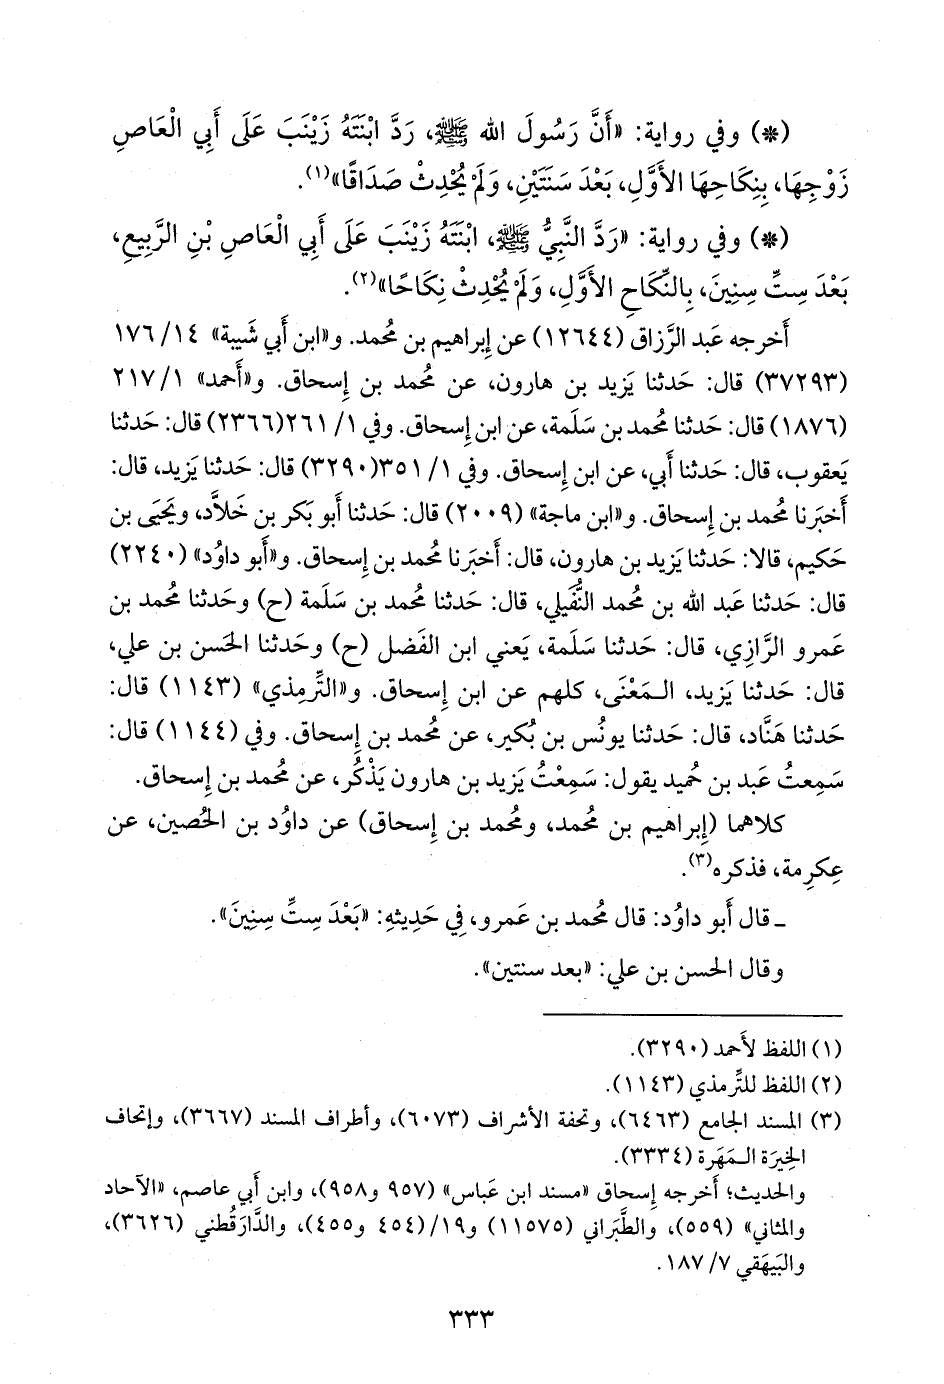 (*) وفي رواية: «أَنَّ رَسُولَ الله ﷺ، رَدَّ ابْنَتَهُ زَيْنَبَ عَلَى أَبِي الْعَاصِ
زَوْجِهَا، بِنِكَاحِهَا الأَوَّلِ، بَعْدَ سَنَتَيْنِ، وَلَمْ يُحْدِثْ صَدَاقًا»(١).
(*) وفي رواية: «رَدَّ النَّبِيُّ ﷺ، ابْنَتَهُ زَيْنَبَ عَلَى أَبِي الْعَاصِ بْنِ الرَّبِيعِ،
بَعْدَ سِتِّ سِنِينَ، بِالنِّكَاحِ الأَوَّلِ، وَلَمْ يُحْدِثْ نِكَاحًا»(٢).
أَخرجه عَبد الرَّزاق (١٢٦٤٤) عن إِبراهيم بن مُحمد. و«ابن أَبي شَيبة» ١٤/ ١٧٦
(٣٧٢٩٣) قال: حَدثنا يَزيد بن هارون، عن مُحمد بن إِسحاق. و«أَحمد» ١/ ٢١٧
(١٨٧٦) قال: حَدثنا مُحمد بن سَلَمة، عن ابن إِسحاق. وفي ١/ ٢٦١(٢٣٦٦) قال: حَدثنا
يَعقوب، قال: حَدثنا أَبي، عن ابن إِسحاق. وفي ١/ ٣٥١(٣٢٩٠) قال: حَدثنا يَزيد، قال:
أَخبَرنا مُحمد بن إِسحاق. و«ابن ماجة» (٢٠٠٩) قال: حَدثنا أَبو بَكر بن خَلاَّد، ويَحيَى بن
حَكيم، قالا: حَدثنا يَزيد بن هارون، قال: أَخبَرنا مُحمد بن إِسحاق. و«أَبو داوُد» (٢٢٤٠)
قال: حَدثنا عَبد الله بن مُحمد النُّفَيلي، قال: حَدثنا مُحمد بن سَلَمة (ح) وحَدثنا مُحمد بن
عَمرو الرَّازِي، قال: حَدثنا سَلَمة، يَعني ابن الفَضل (ح) وحَدثنا الحَسن بن علي،
قال: حَدثنا يَزيد، الـمَعْنَى، كلهم عن ابن إِسحاق. و«التِّرمِذي» (١١٤٣) قال:
حَدثنا هَنَّاد، قال: حَدثنا يونُس بن بُكير، عن مُحمد بن إِسحاق. وفي (١١٤٤) قال:
سَمِعتُ عَبد بن حُميد يقول: سَمِعْتُ يَزيد بن هارون يَذْكُر، عن مُحمد بن إِسحاق.
كلاهما (إِبراهيم بن مُحمد، ومُحمد بن إِسحاق) عن داوُد بن الحُصين، عن
عِكرِمة، فذكره(٣).
ـ قال أَبو داوُد: قال مُحمد بن عَمرو، فِي حَدِيثِهِ: «بَعْدَ سِتِّ سِنِينَ».
وقال الحَسن بن علي: «بعد سنتين».
(١) اللفظ لأَحمد (٣٢٩٠).
(٢) اللفظ للتِّرمذي (١١٤٣).
(٣) المسند الجامع (٦٤٦٣)، وتحفة الأشراف (٦٠٧٣)، وأطراف المسند (٣٦٦٧)، وإتحاف
الخِيرَة الـمَهَرة (٣٣٣٤).
والحديث؛ أَخرجه إِسحاق «مسند ابن عَباس» (٩٥٧ و٩٥٨)، وابن أَبي عاصم، «الآحاد
والمثاني» (٥٥٩)، والطَّبَراني (١١٥٧٥) و١٩/(٤٥٤ و٤٥٥)، والدَّارَقُطني (٣٦٢٦)،
والبَيهَقي ٧/ ١٨٧.
٣٣٣